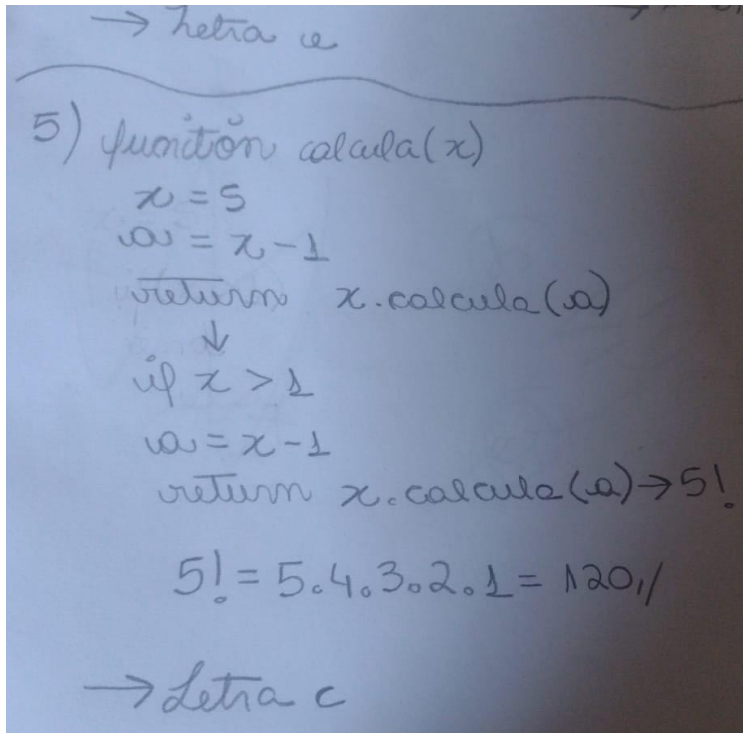 → Letra e
5) function calcula(x)
x = 5
a = x - 1
return x.calcula(a)
↓
if x > 1
a = x - 1
return x.calcula(a) → 5!
5! = 5.4.3.2.1 = 120,/
→ Letra c